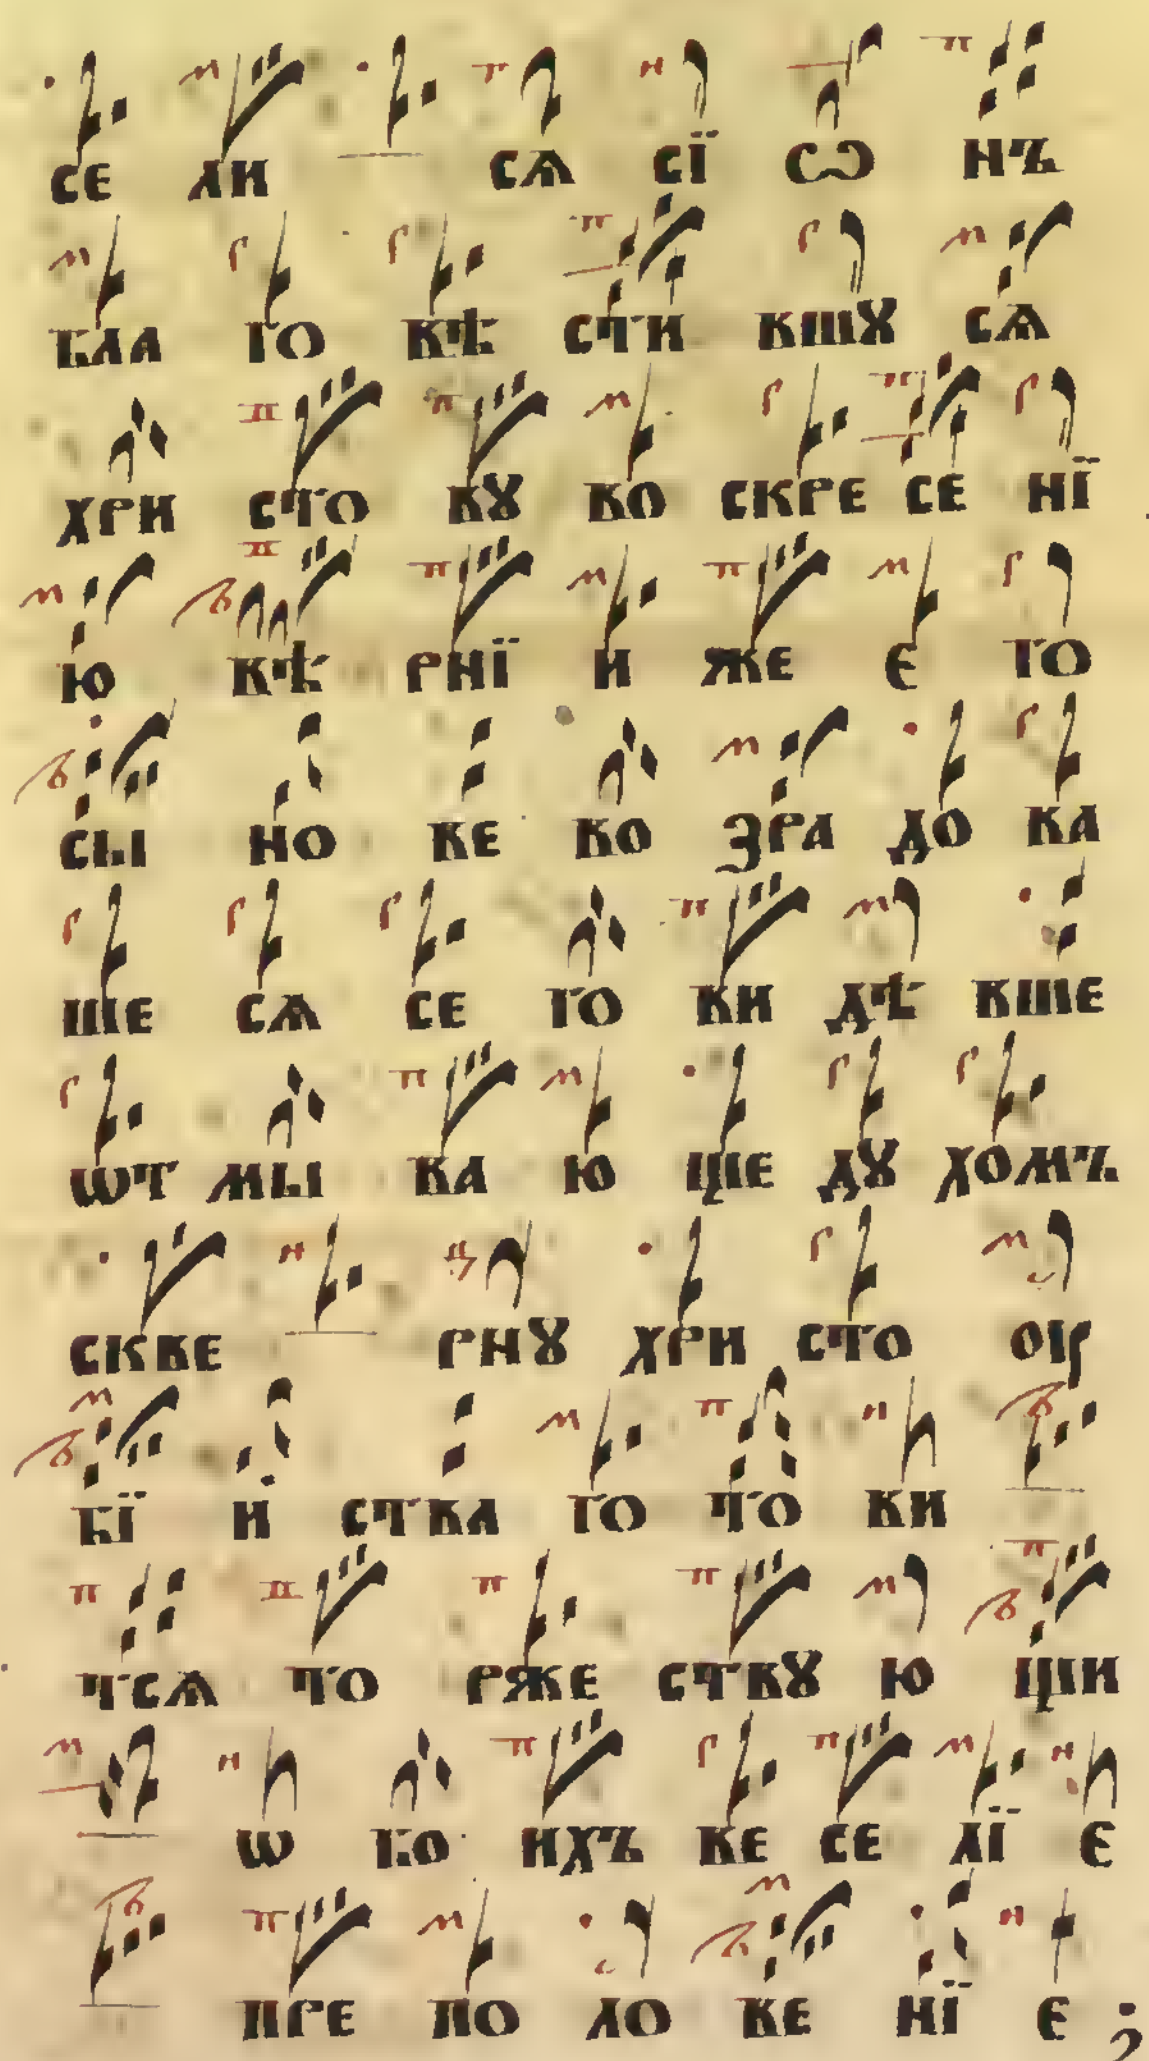 СЕ ЛИ СѦ СЇ Ѡ НЪ
БЛА ГО ВѢ СТИ ВШꙋ СѦ
ХРИ СТО Вꙋ ВО СКРЕ СЕ НЇ
Ю ВѢ РНЇ И ЖЕ Є ГО
СЫ НО ВЕ ВО ЗРА ДО ВА
ШЕ СѦ СЕ ГО ВИ ДѢ ВШЕ
ѠТ МЫ ВА Ю ЩЕ Дꙋ ХОМЪ
СКВЕ РНꙋ ХРИ СТО ОУ
БЇ И СТВА ТО ТО ВИ
ТСѦ ТО РЖЕ СТВꙋ Ю ЩИ
Ѡ БО ИХЪ ВЕ СЕ ЛЇ Є
ПРЕ ПО ЛО ВЕ НЇ Є ;